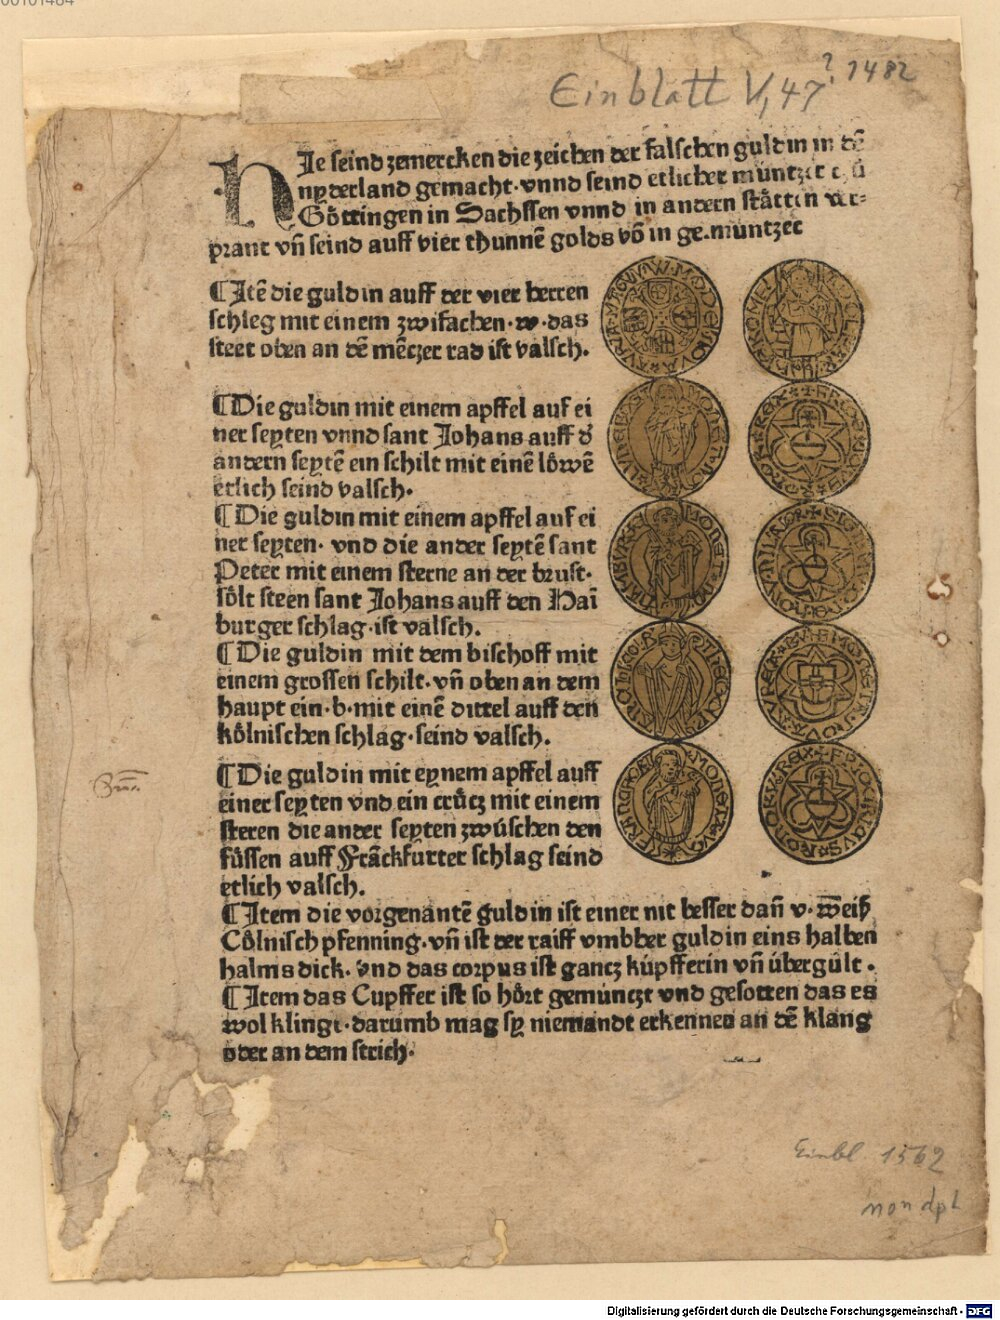 00101484
Einblatt V,47 ? 1482
HIe seind zemercken die zeichen der falschen guldin in dē
nyderland gemacht·vnnd seind etlicher müntzer zů
Göttingen in Sachssen vnnd in andern stätten ver-
prant vñ seind auff vier thunnē golds vō in ge.müntzet
¶Jtē die guldin auff der vier herren
schleg mit einem zwifachen·w·das
steet oben an dē mēczer rad ist valsch.
¶Die guldin mit einem apffel auf ei
ner seyten vnnd sant Johans auff d̕
andern seytē ein schilt mit einē löwē
etlich seind valsch.
¶Die guldin mit einem apffel auf ei
ner seyten· vnd die ander seytē sant
Peter mit einem sterne an der brust·
sölt steen sant Johans auff den Hām
burger schlag·ist valsch.
¶Die guldin mit dem bischoff mit
einem grossen schilt·vñ oben an dem
haupt ein·b·mit einē dittel auff den
kölnischen schlag·seind valsch.
¶Die guldin mit eynem apffel auff
einer seyten vnd ein crücz mit einem
steren die ander seyten zwüschen den
füssen auff Frāckfurter schlag seind
etlich valsch.
¶Jtem die vorgenantē guldin ist einer nit besser dañ v·weiß
Cölnisch pfenning·vñ ist der raiff vmbber guldin eins halben
halms dick. vnd das corpus ist gancz küpfferin vñ übergült.
¶Jtem das Cupffer ist so hört gemünczt vnd gesotten das es
wol klingt·darumb mag sy niemandt erkennen an dē klang
oder an dem strich·
Einbl 1562
non dpl
Digitalisierung gefördert durch die Deutsche Forschungsgemeinschaft - DFG